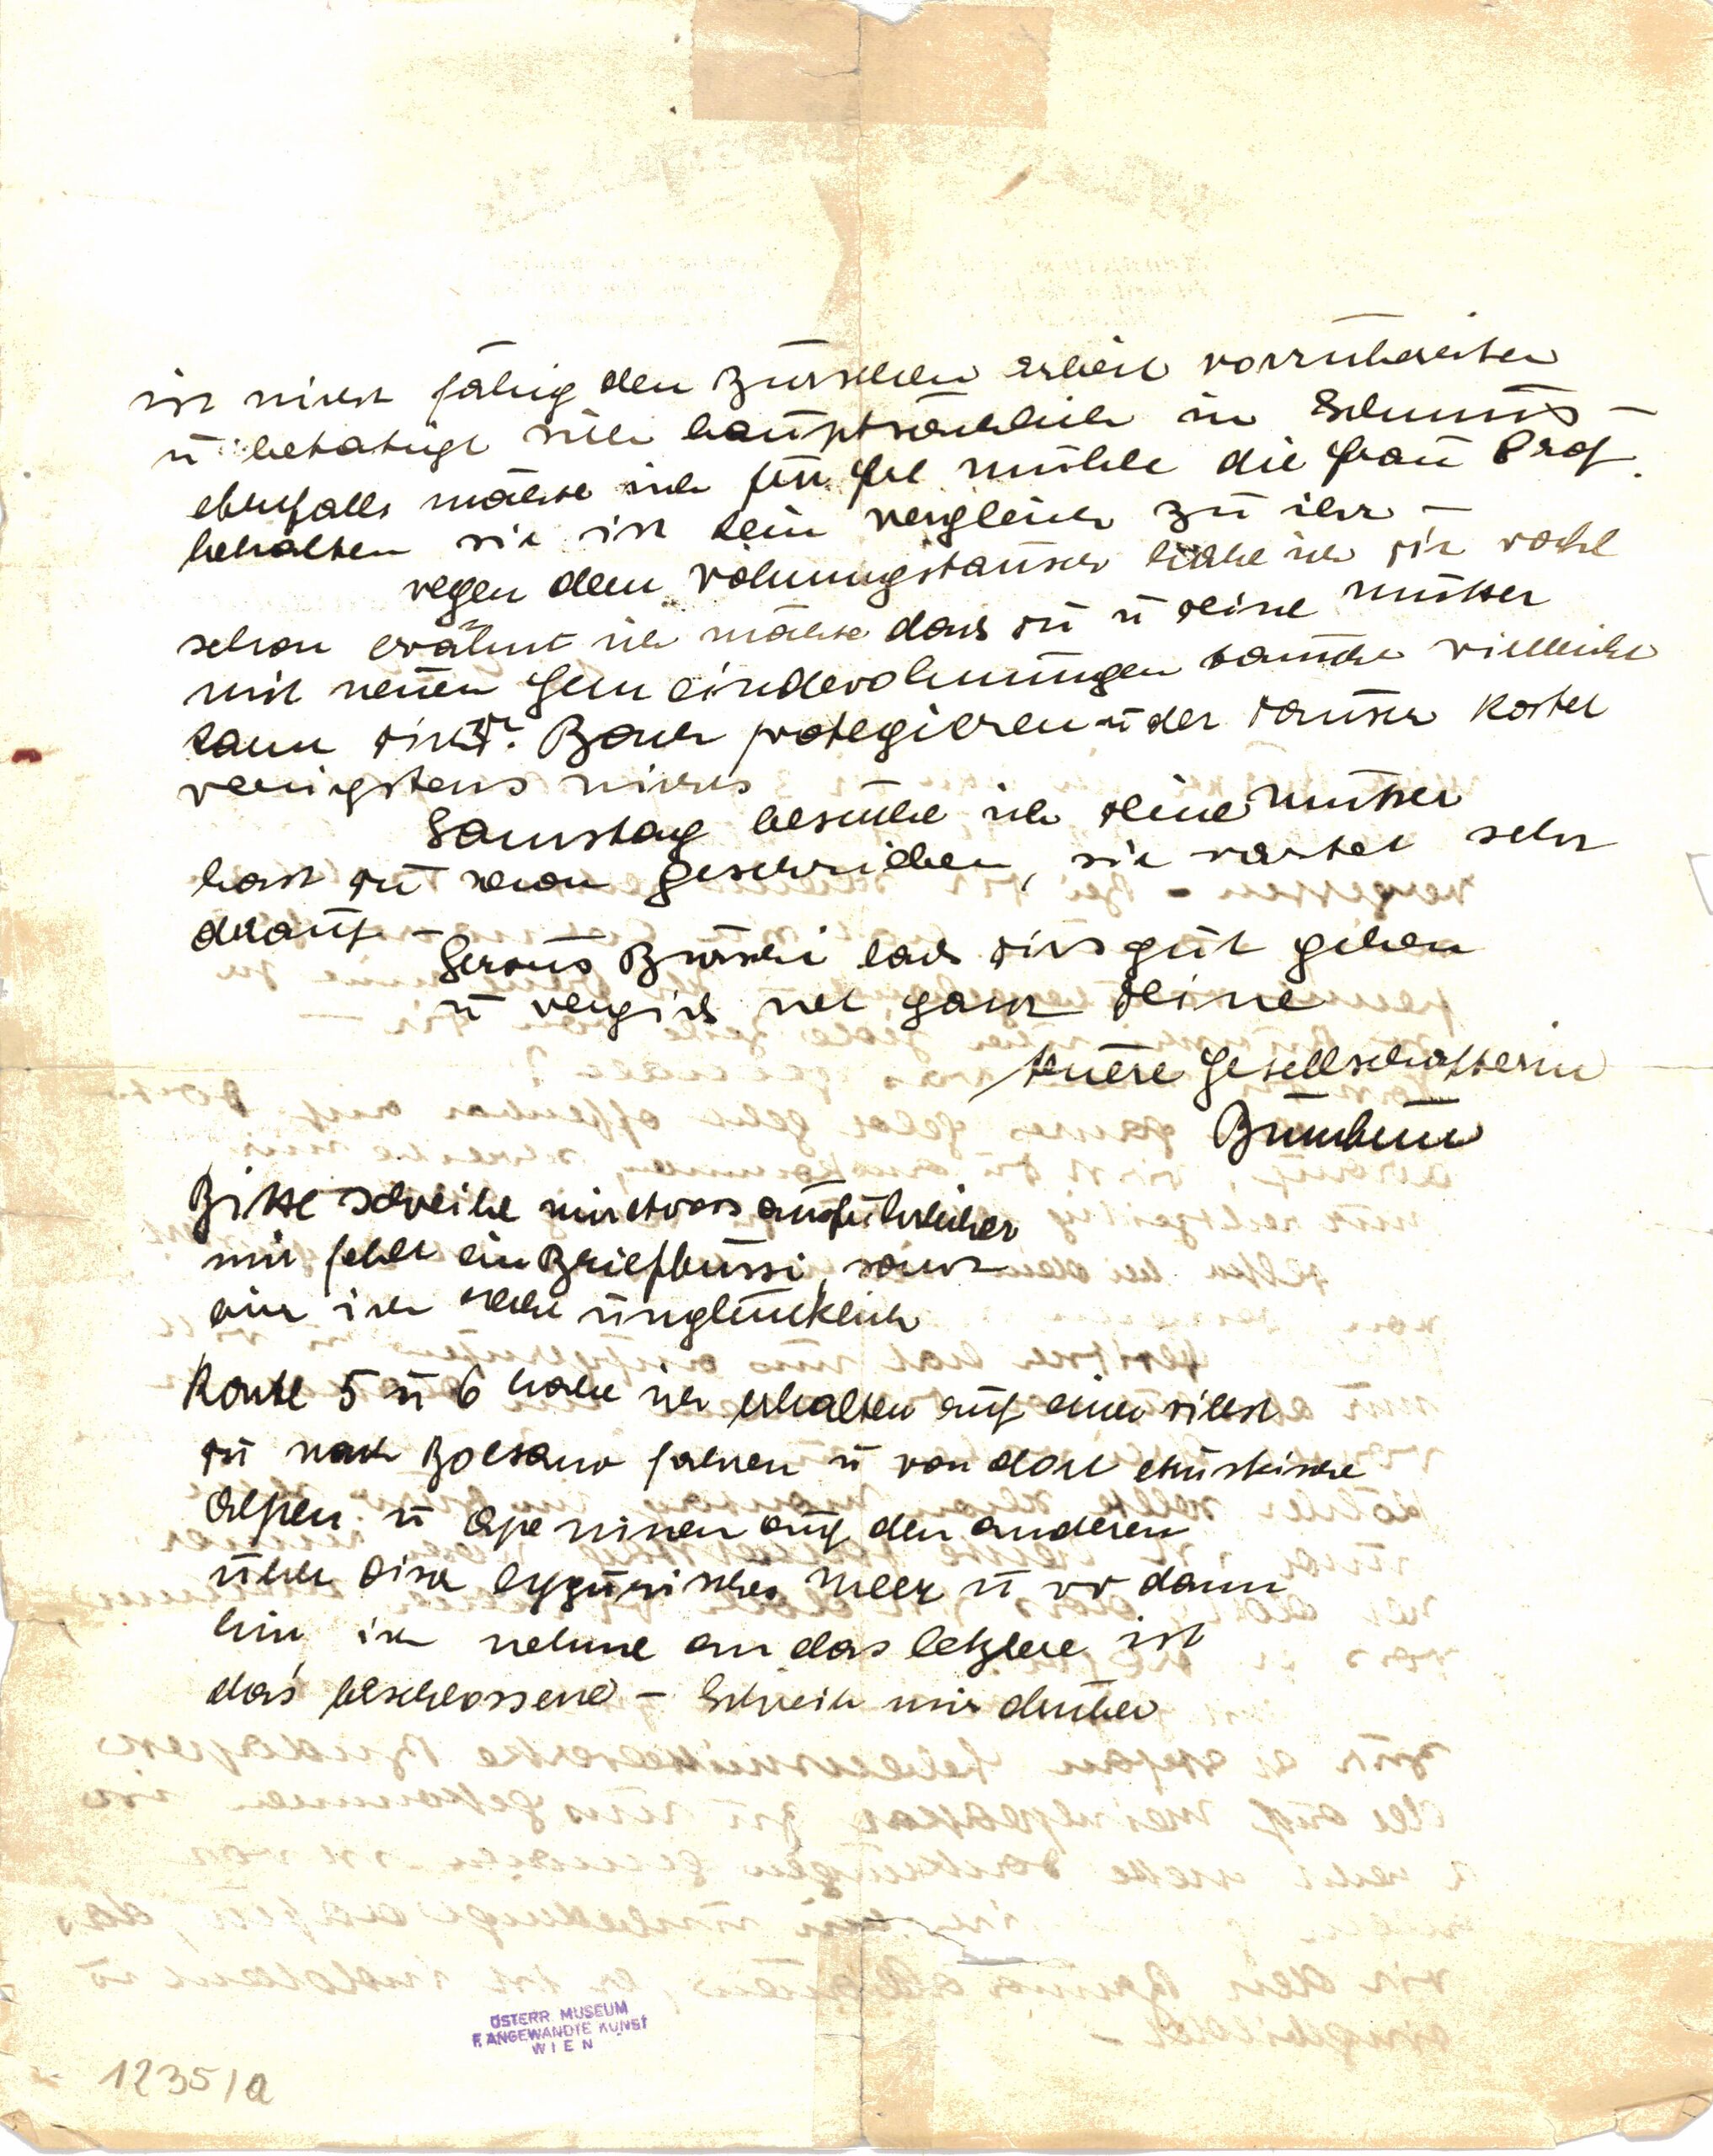 ist nicht fähig den Burschen Arbeit vorzubereiten
u betätigt sich hauptsächlich in Schmus –
ebenfalls möchte ich für frl mühle die frau Prof.
behalten sie ist kein vergleich zu ihr –
wegen dem wohnungstausch habe ich dir wohl
schon erwähnt ich möchte dass du u deine mutter
mit neuen gemeindewohnungen tauscht vielleicht
kann dich Dr. Bauer protegieren u der tausch kostet
wenigstens nichts
Samstag besuche ich deine mutter
hast du schon geschrieben, sie wartet sehr
darauf –
Servus Burschi lass dirs gut gehen
u vergiss net ganz deine
teuere gesellschafterin
Bimbim
Bitte schreibe mir etwas ausführlicher
mir fehlt ein Briefbussi, sonst
bin ich unglücklich
Route 5 u 6 habe ich erhalten auf einer willst
du nach Bolsano fahren u von dort etruskische
Alpen u Apeninen auf der anderen
über Pisa lygurisches meer u wo dann
hin, ich nehme an das letztere ist
das beschlossene – Schreib mir drüber
ÖSTERR. MUSEUM
F. ANGEWANDTE KUNST
WIEN
1235/a